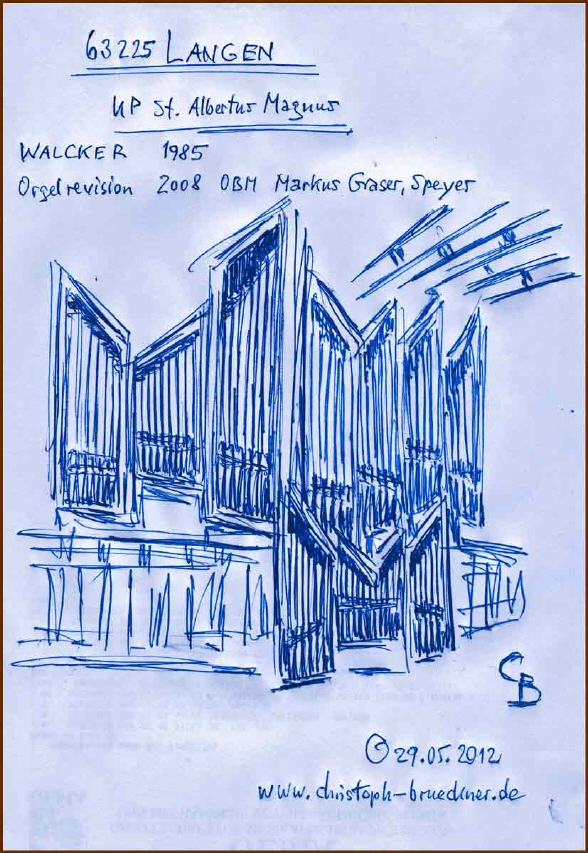 63225 LANGEN
KP St. Albertus Magnus
WALCKER 1985
Orgelrevision 2008 OBM Markus Graser, Speyer
CB
© 29.05.2012
www.christoph-brueckner.de